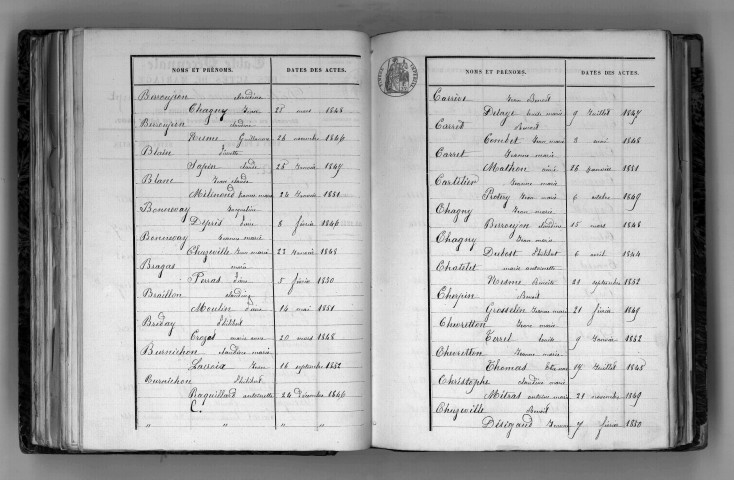 NOMS ET PRÉNOMS. DATES DES ACTES.
Berroujon claudine
Chagny Jean 25 mars 1848
Berroujon claudine
Nesme Guillaume 26 novembre 1846
Blain
Sapin claude 25 Janvier 1847
Blanc Jean claude
Jeanne marie 24 Janvier 1851
Bonnevay Jacqueline
8 février 1846
Bonnevay Jeanne marie
Chuzeville Jean marie 23 Janvier 1848
Bragas marie
Perras 5 février 1850
Braillon claudine
Moulin 14 mai 1851
Briday Philibert
Crozet marie 20 mars 1848
Burnichon claudine marie
Lacroix Jean 16 septembre 1852
Burnichon Philibert
Raquillard antoinette 24 Décembre 1846
C.
" " " "
NOMS ET PRÉNOMS. DATES DES ACTES.
Carrier Jean Benoit
Delaye marie 9 Juillet 1847
Carret Benoit
Combet Jean marie 3 1848
Carret Jeanne marie
Mathon 26 Janvier 1851
Cartilier Jeanne marie
Protery Jean marie 6 octobre 1849
Chagny Jean marie
Berroujon claudine 15 mars 1848
Chagny Jean marie
Dubost Philibert 6 avril 1844
Chatelet marie antoinette
Nesme Benoit 21 septembre 1852
Cherpin Benoit
Grosselin Jeanne marie 21 février 1849
Chevretton Jeanne marie
Carret 9 Janvier 1852
Chevretton Jeanne marie
Thomas 14 Juillet 1845
Christophe claudine marie
Mitras antoine marie 21 novembre 1849
Chuzeville Benoit
Désigaud Jeanne 7 février 1850